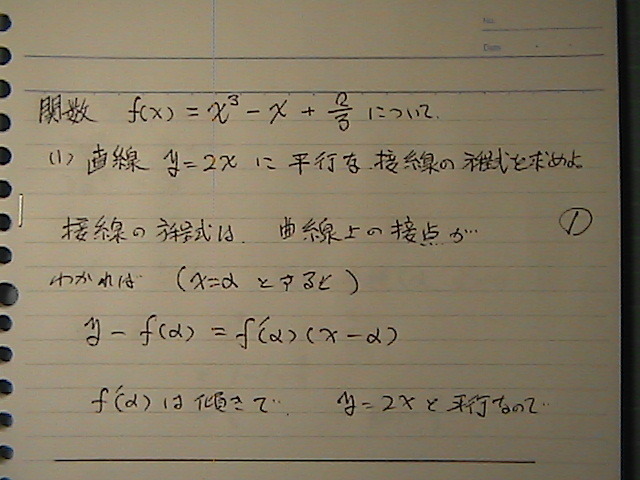 No.
Date
関数 f(x) = x³ - x + 2/3 について.
(1) 直線 y=2x に平行な接線の方程式を求めよ
接線の方程式は. 曲線上の接点が… ①
わかれば (x=α とすると)
y - f(α) = f'(α)(x-α)
f'(α) は傾きで. y=2x と平行なので…